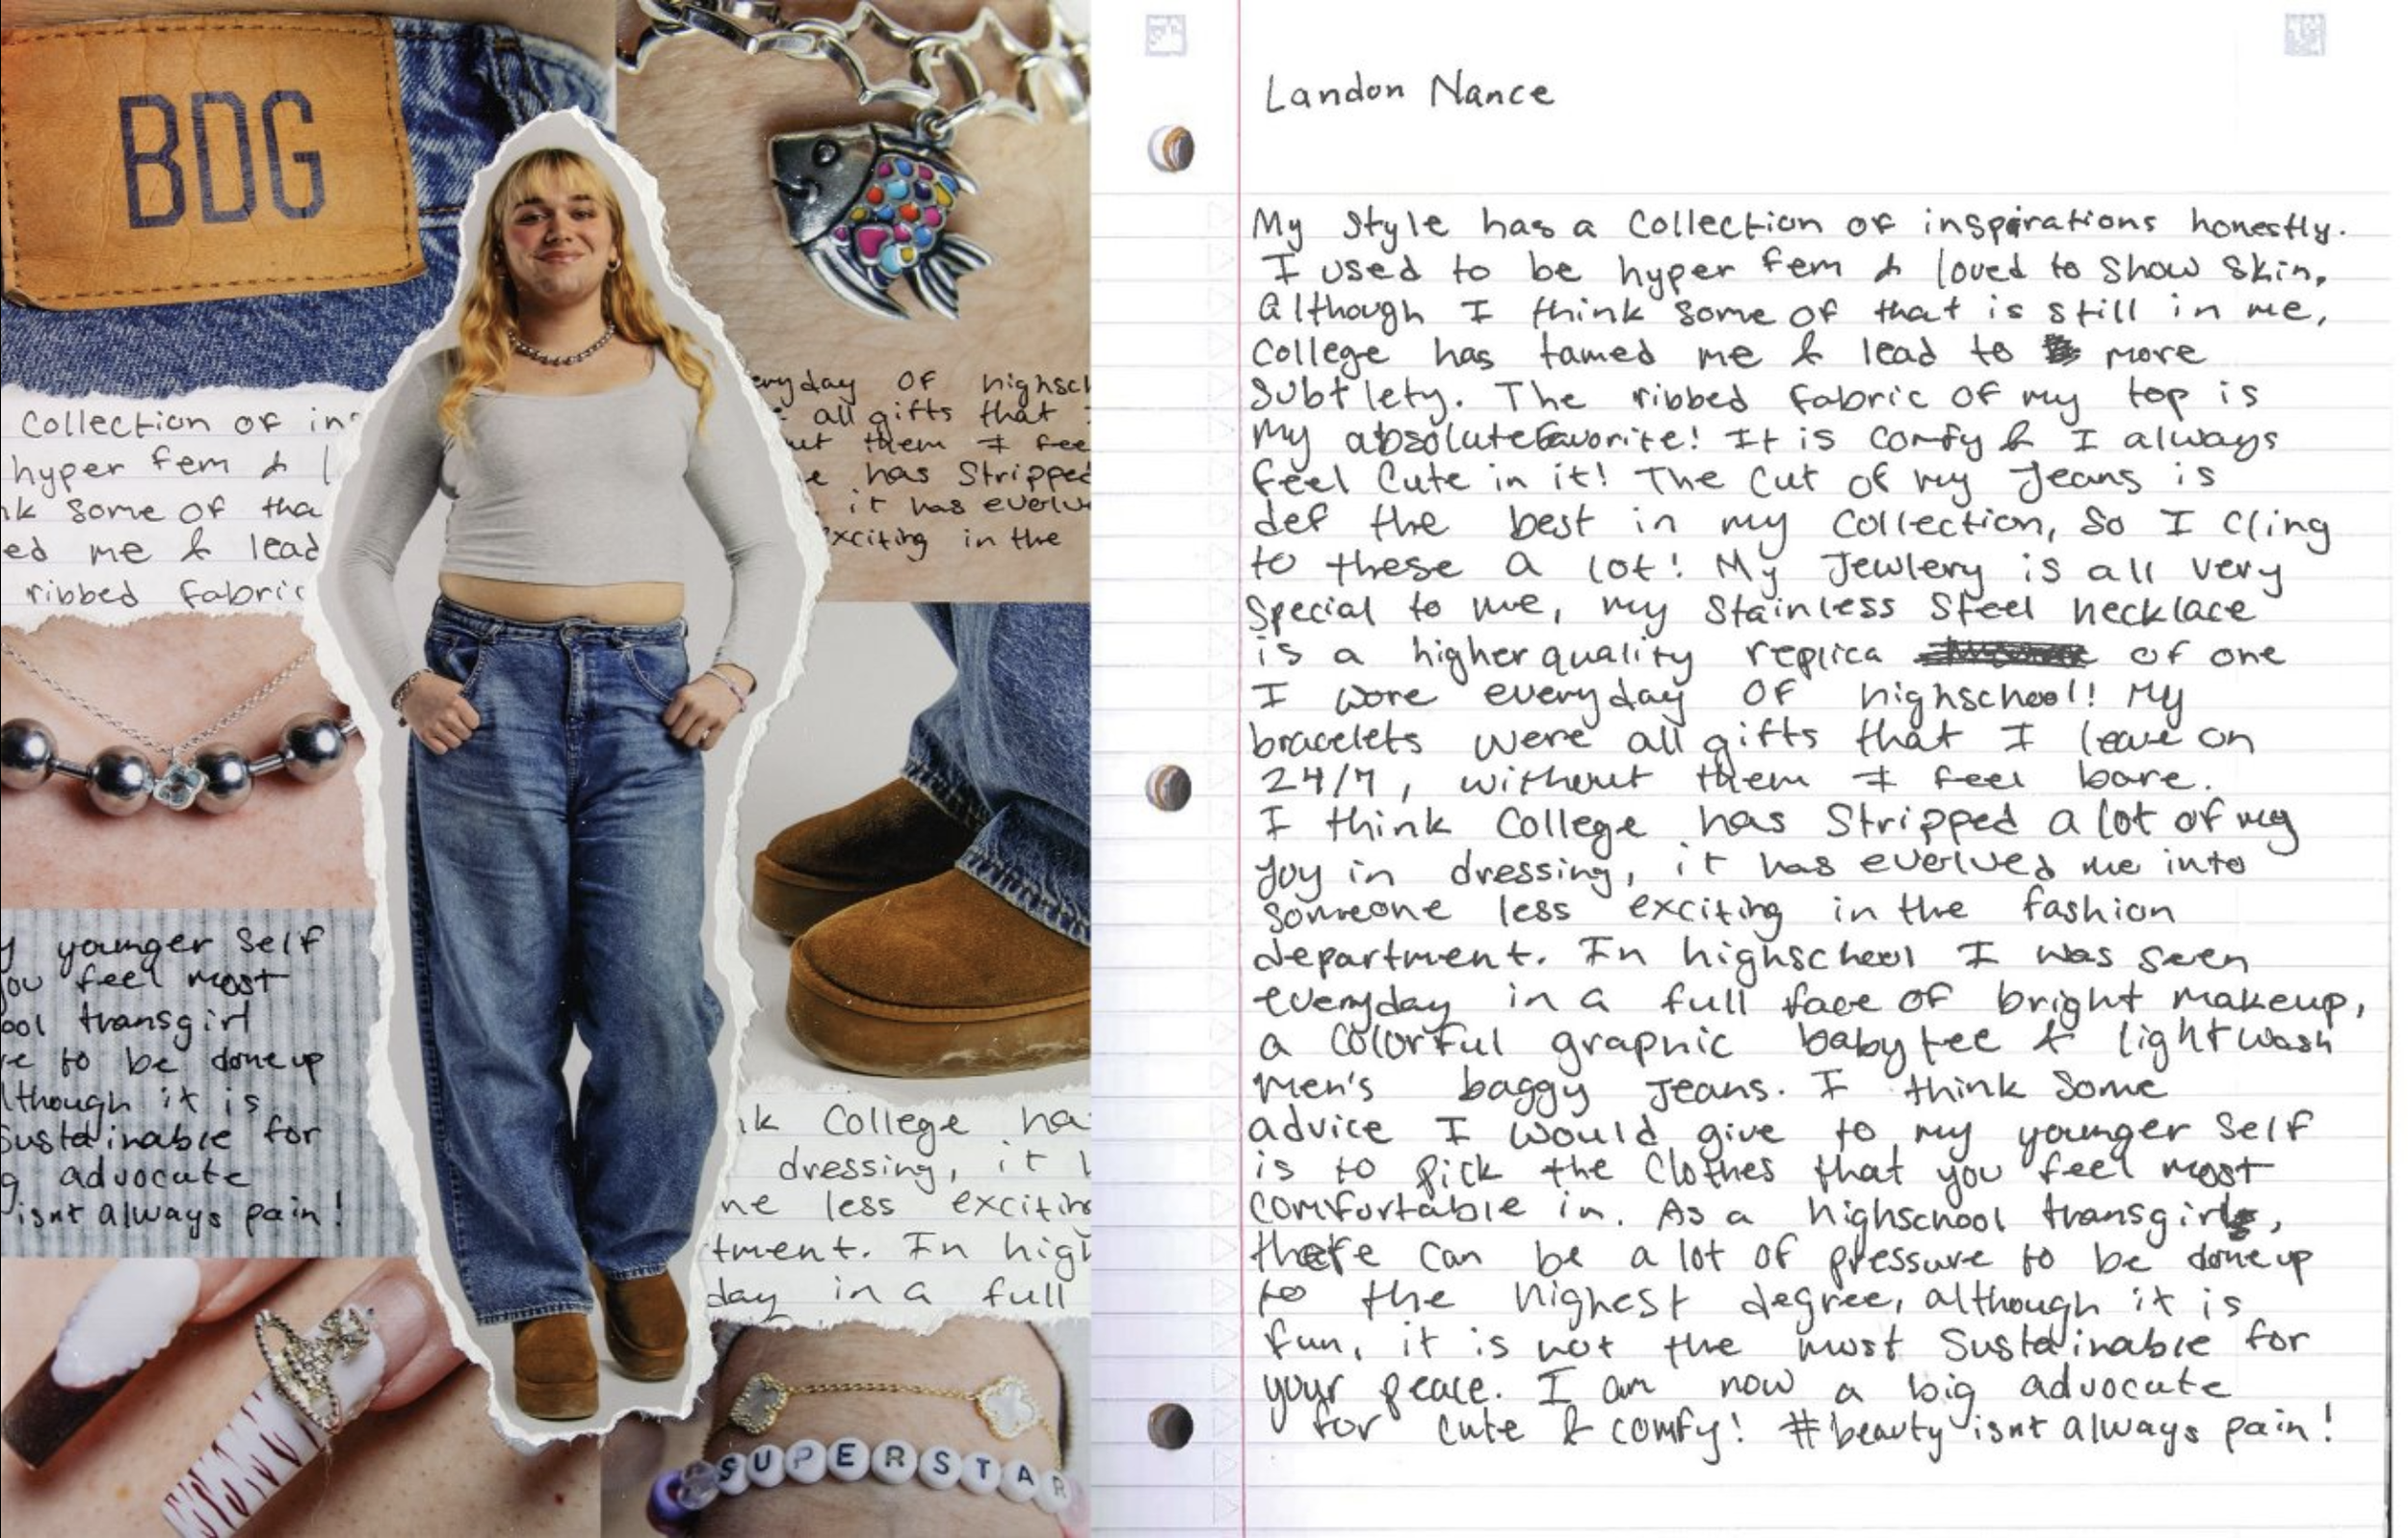 BDG
Collection of ins
hyper fem &
nk some of tha
ed me & lead
ribbed fabric
eryday of highsch
all gifts that
ut them I fee
e has Stripped
it has evolve
exciting in the
y younger self
you feel most
ool transgirl
re to be done up
lthough it is
sustainable for
g advocate
isnt always pain!
nk College ha
dressing, it
ne less exciting
tment. In high
day in a full
SUPERSTAR
Landon Nance
My style has a collection of inspirations honestly.
I used to be hyper fem & loved to show skin,
although I think some of that is still in me,
college has tamed me & lead to more
subtlety. The ribbed fabric of my top is
my absolute favorite! It is comfy & I always
feel cute in it! The cut of my jeans is
def the best in my collection, so I cling
to these a lot! My Jewlery is all very
special to me, my stainless steel necklace
is a higher quality replica of one
I wore everyday of highschool! My
bracelets were all gifts that I leave on
24/7, without them I feel bare.
I think College has Stripped a lot of my
joy in dressing, it has evolved me into
someone less exciting in the fashion
department. In highschool I was seen
everyday in a full face of bright makeup,
a colorful graphic baby tee & light wash
men's baggy jeans. I think some
advice I would give to my younger self
is to pick the clothes that you feel most
comfortable in. As a highschool transgirl,
there can be a lot of pressure to be done up
to the highest degree, although it is
fun, it is not the most sustainable for
your peace. I am now a big advocate
for cute & comfy! #beauty isnt always pain!